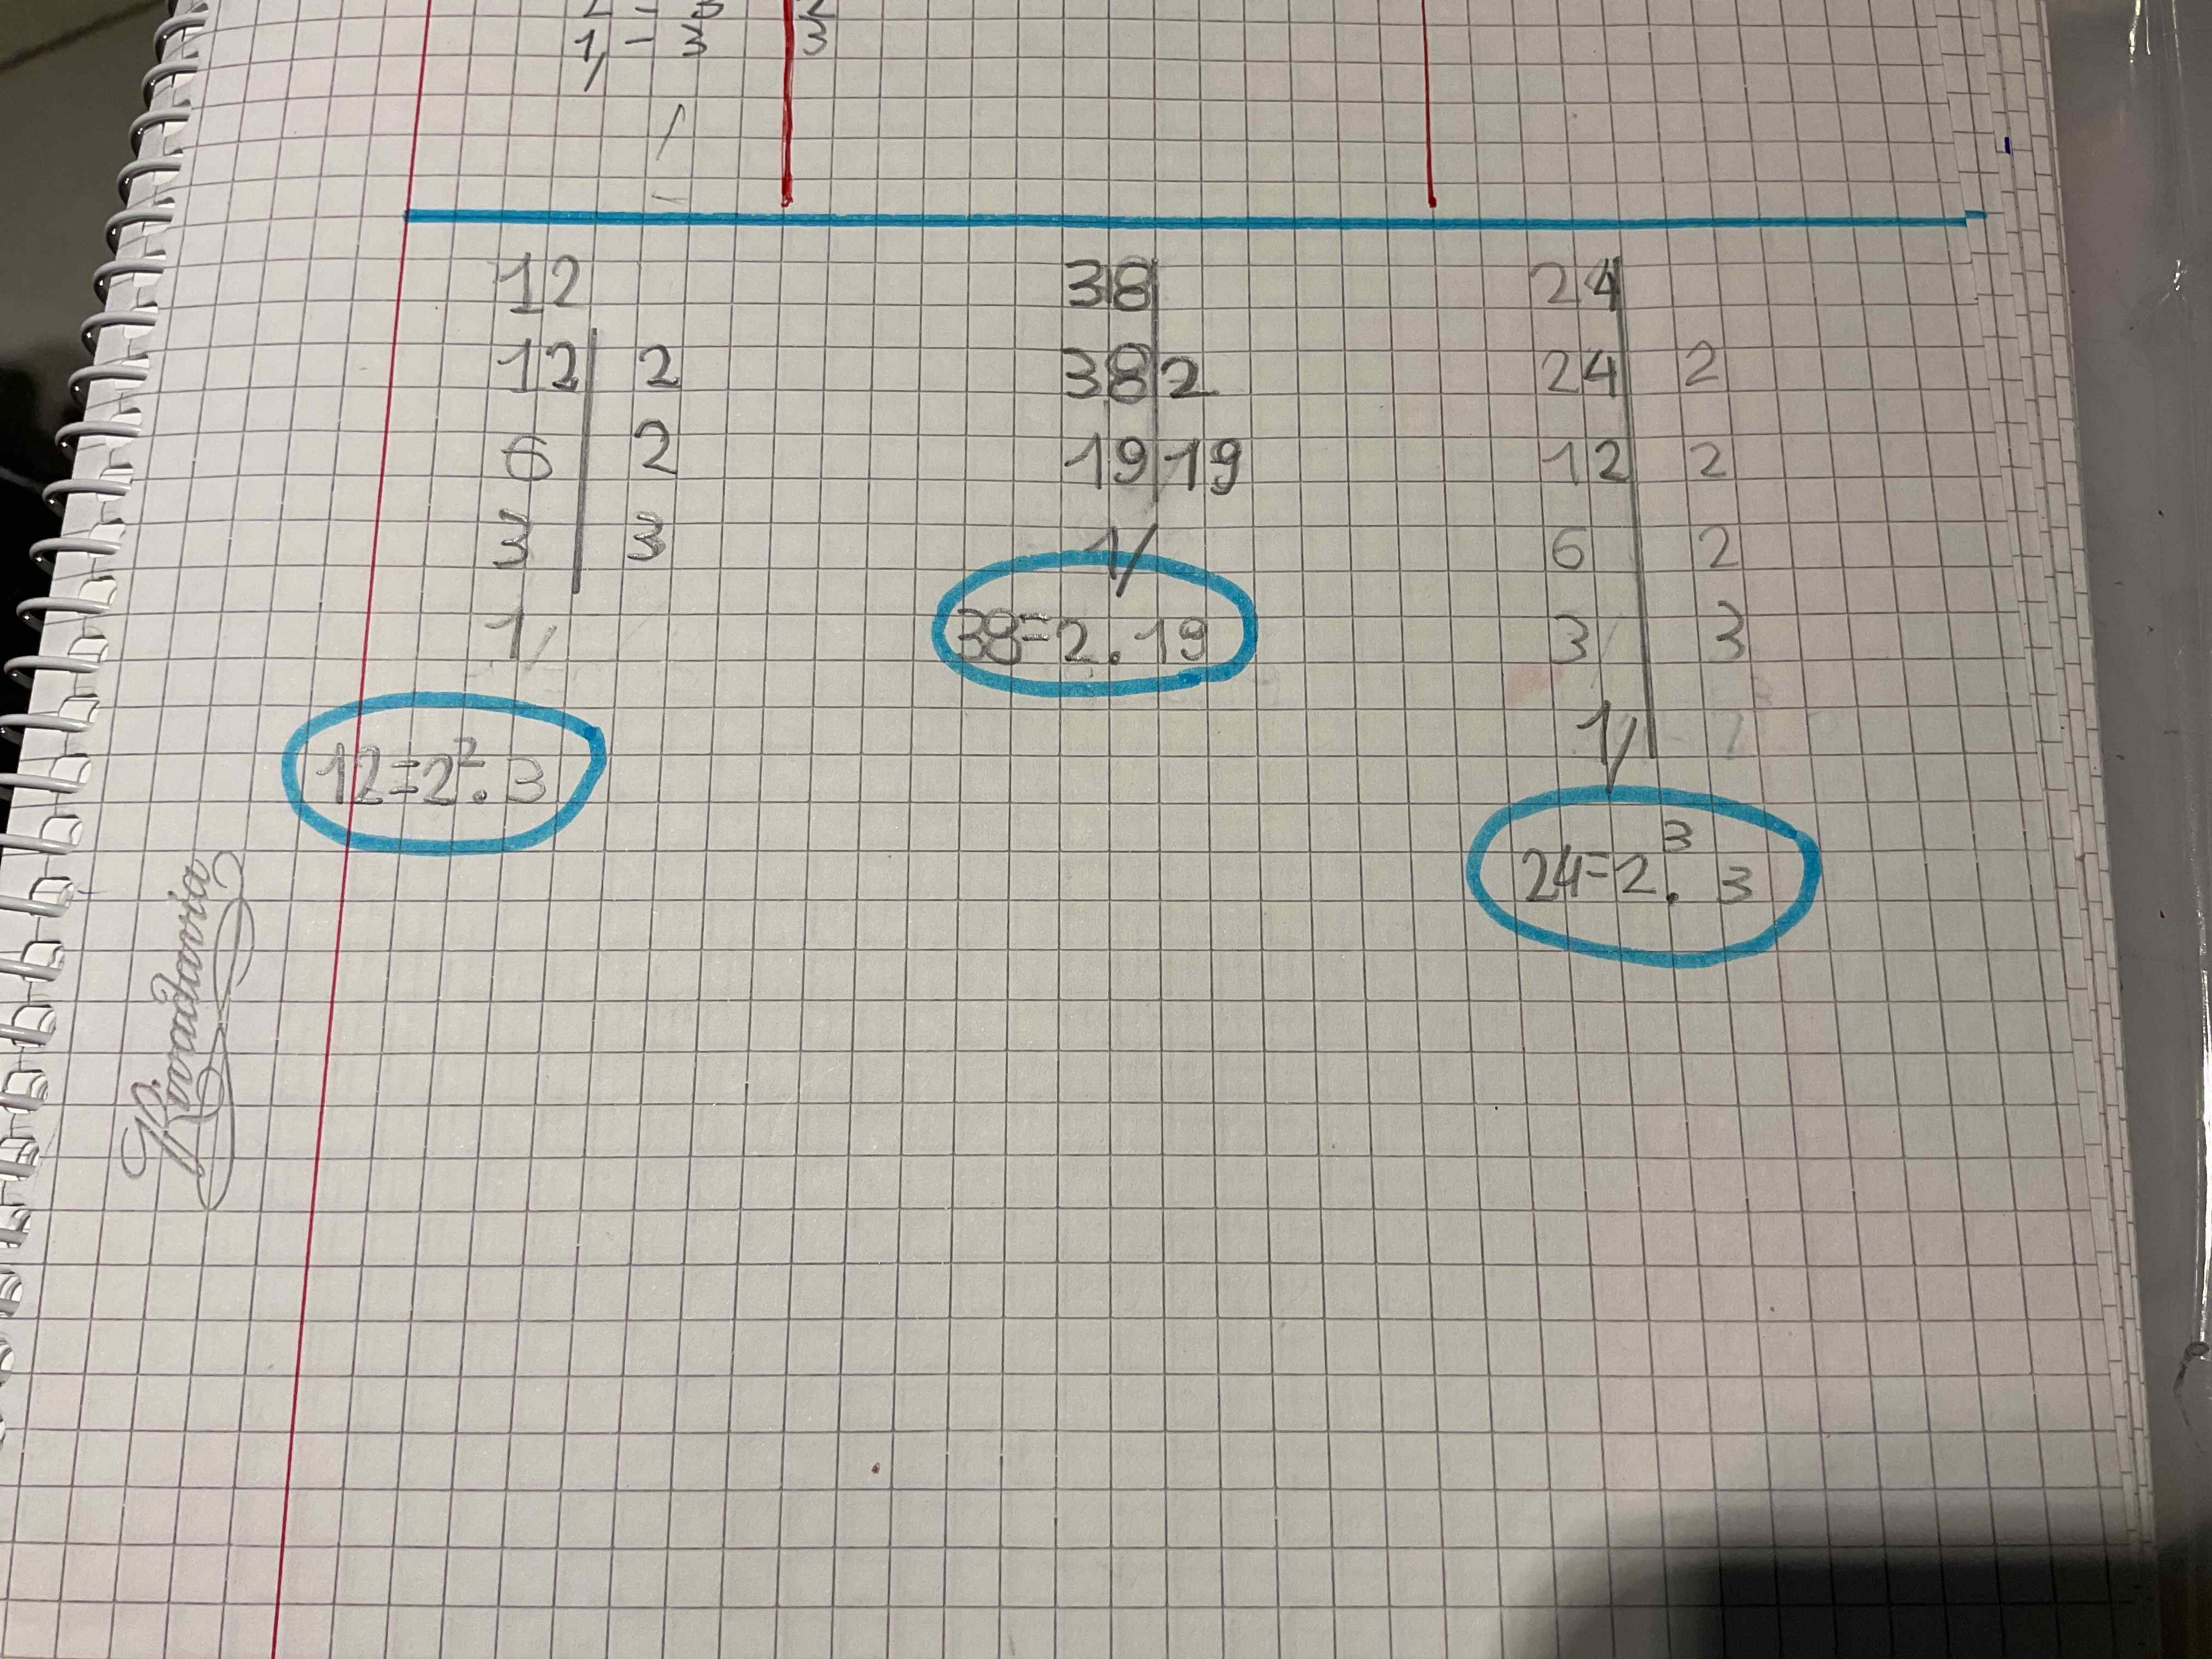 1 - 3 3
12
12 2
6 2
3 3
1
12=2². 3
38
38 2
19 19
1
38=2.19
24
24 2
12 2
6 2
3 3
1
24=2³. 3
Rivadavia